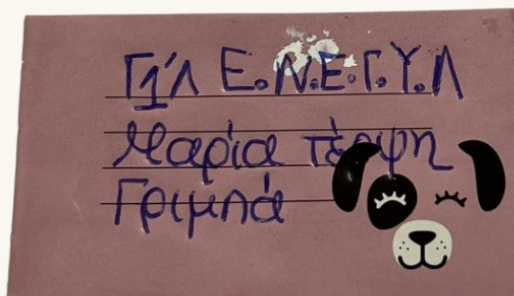 Γ1'Λ Ε.Ν.Ε.Γ.Υ.Λ
Μαρία
Γριμπά